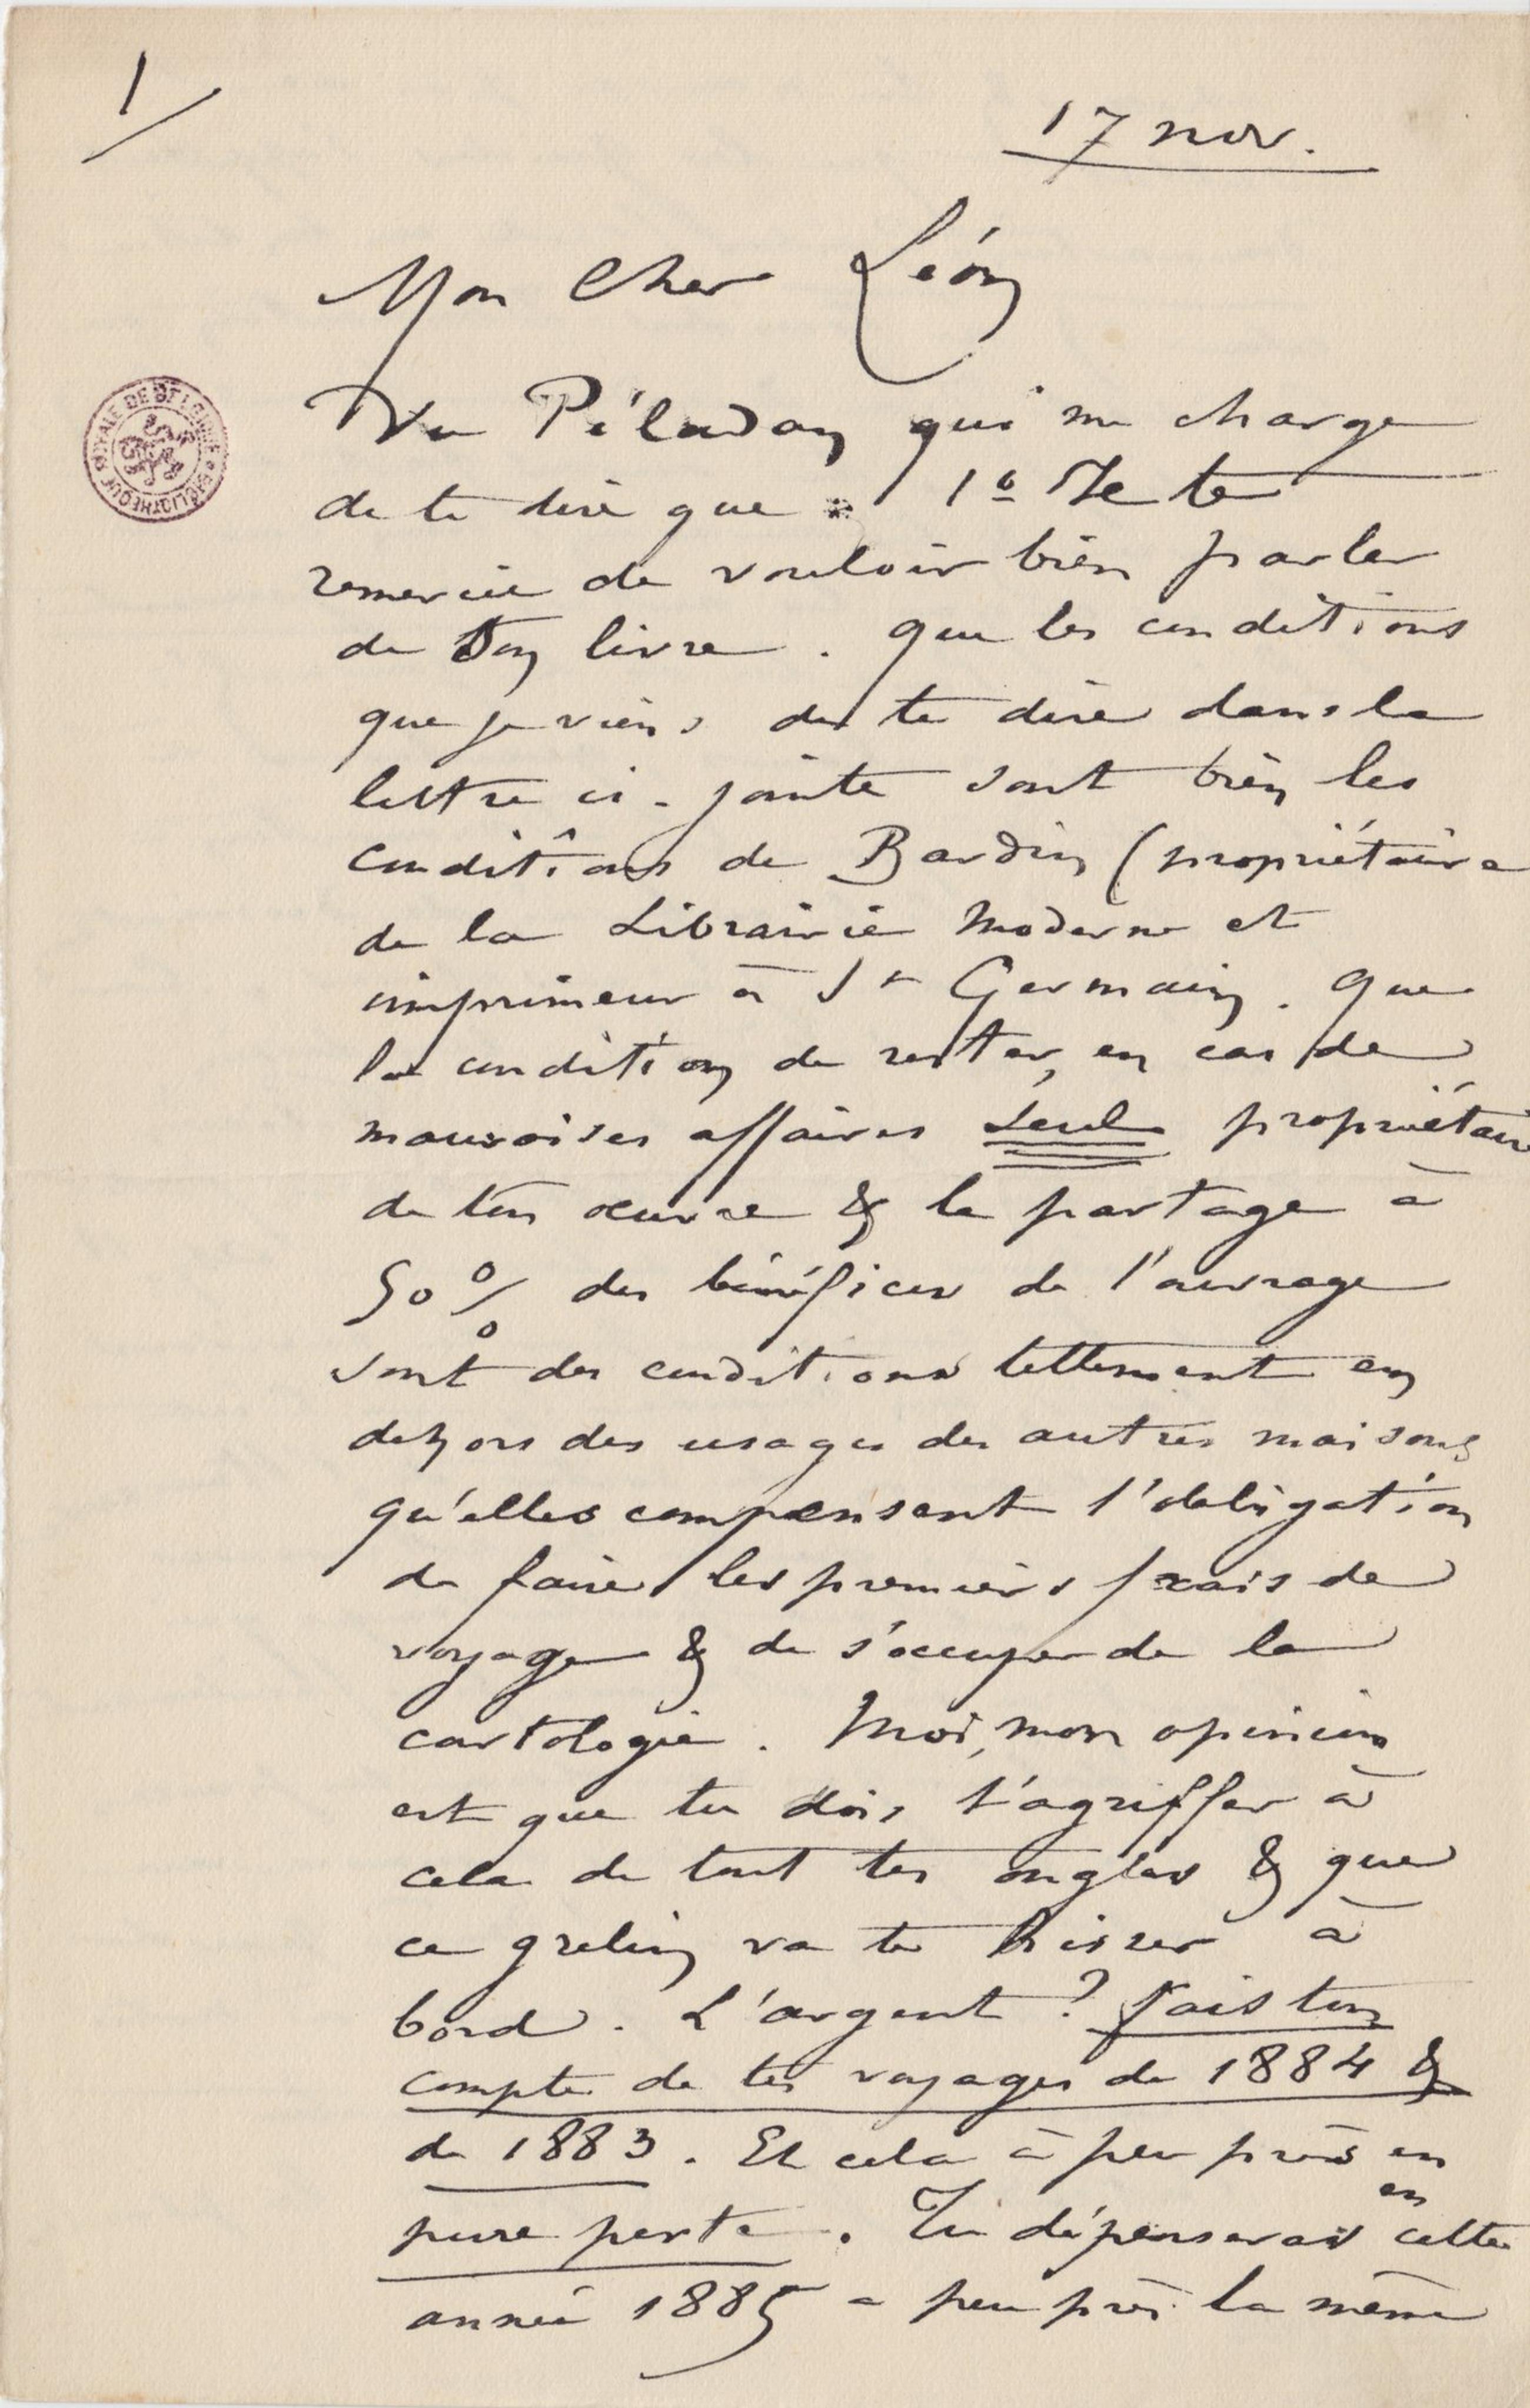 1/
17 nov.
Mon Cher Léon
Vu Péladan qui me charge
de te dire que 1º Il te
remercie de vouloir bien parler
de son livre. que les conditions
que je viens de te dire dans la
lettre ci-jointe sont bien les
conditions de Bardin (propriétaire
de la Librairie Moderne et
imprimeur à St Germain. que
la condition de rester, en cas de
mauvaises affaires seul propriétaire
de ton œuvre & le partage à
50 % des bénéfices de l'ouvrage
sont des conditions tellement en
dehors des usages des autres maisons
qu'elles compensent l'obligation
de faire les premiers frais de
voyage & de s'occuper de la
cartologie. Moi, mon opinion
est que tu dois t'agriffer à
cela de tout tes ongles & que
ce grelin va te hisser à
bord. L'argent ? fais ton
compte de tes voyages de 1884 &
de 1883. Et cela à peu près en
pure perte. Tu dépenseras en cette
année 1885 a peu près la même
BIBLIOTHEQUE ROYALE DE BELGIQUE